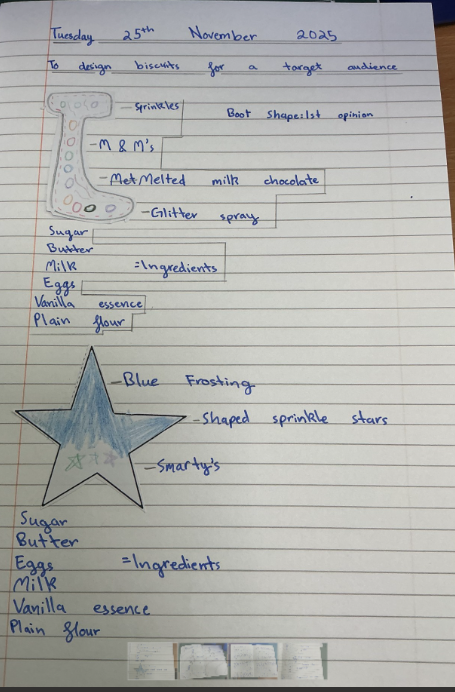 Tuesday 25th November 2025
To design biscuits for a target audience
sprinkles
Boot shape:1st opinion
M & M's
Met Melted milk chocolate
Glitter spray
Sugar
Butter
Milk =Ingredients
Eggs
Vanilla essence
Plain flour
Blue Frosting
Shaped sprinkle stars
Smarty's
Sugar
Butter
Eggs =Ingredients
Milk
Vanilla essence
Plain flour